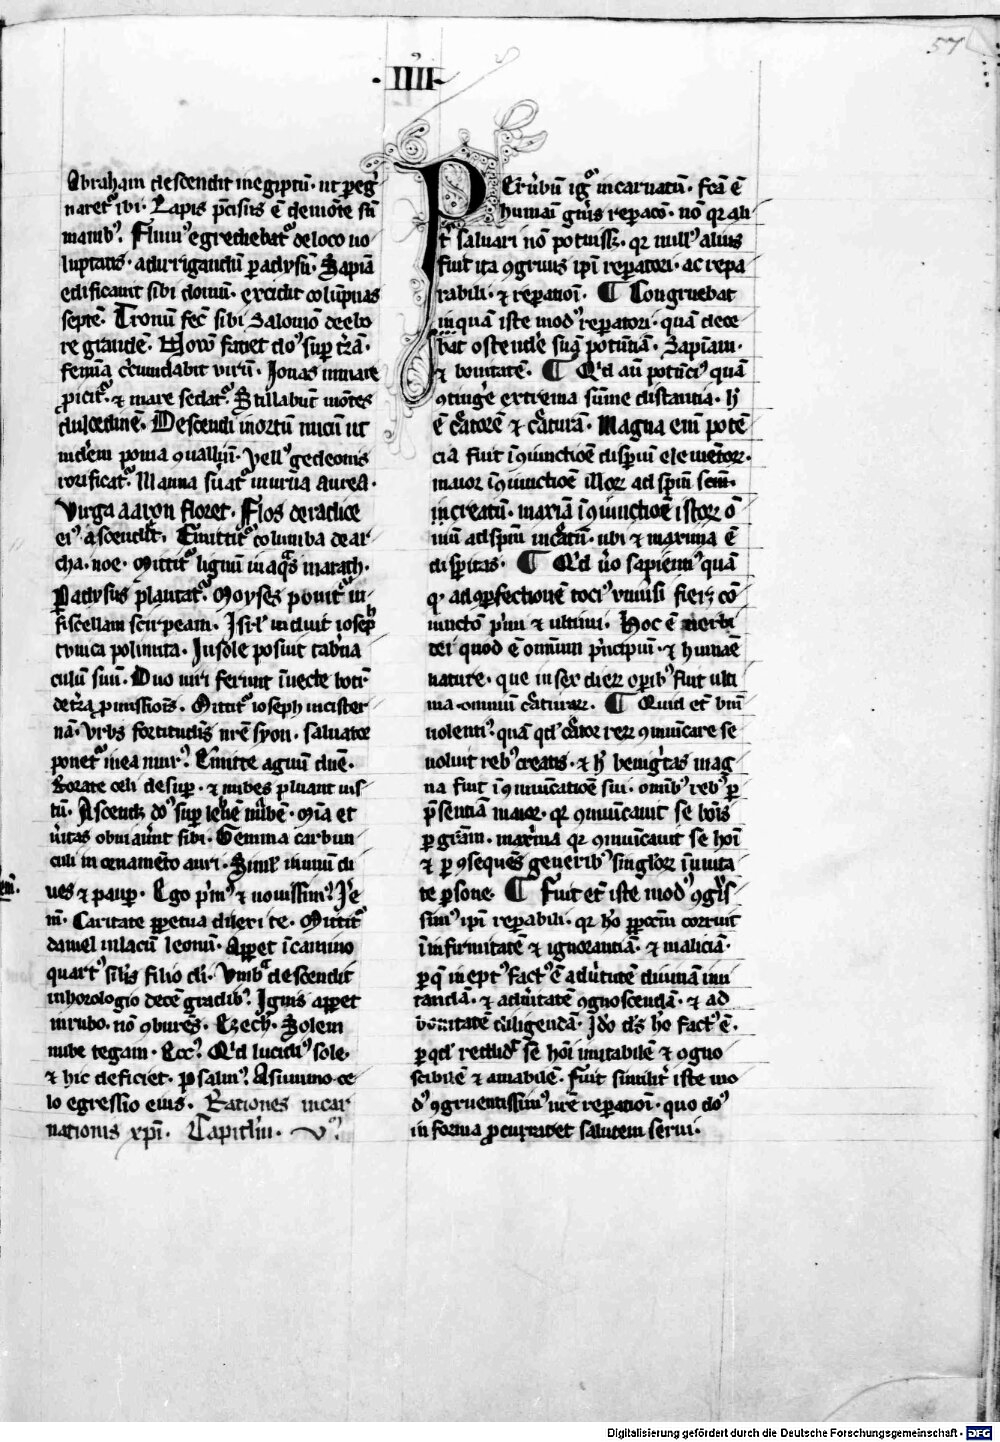 57
·IIII·
Abraham descendit in egiptū· ut peg̓
naretᷣ ibi· Lapis p̄cisus ē de mōte sn̄
manibꝰ· Fluuiꝰ egrediebatᷣ de loco uo
luptatis· ad irrigandū padysū· Sapīa
edificauit sibi domū· excidit colūpnas
septē· Tronū fec̄ sibi Salomō de ebo
re grandē· Nouū faciet doꝰ sup t̄rā·
femīa c̓cumdabit virū· Jonas in mare
ꝓicitᷣ· ⁊ mare sedatᷣ· Stillabūt mōtes
dulcedinē· Descendi in ortū nucū ut
uidem poma ꝯualliū· Vellꝰ gedeonis
rorificatᷣ· Manna s̓uatᷣ in urna aurea·
Virga aaron floret· Flos de radice
eiꝰ ascendit· Emittitᷣ columba de ar
cha· noe· Mittitᷣ lignū in aqͣs marath·
Padysus plantatᷣ· Moyses ponitᷣ in
fiscellam scirpeam· Isrl̓ induit ioseph
tunica polimita· In sole posuit tab̓na
culū suū· Duo uiri ferunt ī uecte botr̄
de t̓ra ꝓmissiōis· Mittitᷣ ioseph in cister
nā· Vrbs fortitudīs nr̄e syon· saluator
ponetᷣ in ea murꝰ· Emitte agnū dn̄e·
Rorate celi desup· ⁊ nubes pluant ius
tū· Ascendet doꝰ sup leuē nubē· Mīa et
u̓itas obuiauer̄t sibi· Gemma carbun
culi in ornamēto auri· Simul in unū di
ues ⁊ paup· Ego p̓mꝰ ⁊ nouissimꝰ· Je
rē· Caritate ppetua dilexi te· Mittitᷣ
daniel in lacū leonū· Apparet ī camino
quartꝰ silīs filio di· Vmbͣ descendit
in horologio decē gradibꝰ· Ignis apparet
in rubo· nō ꝯburēs· Ezech̄· Solem
nube tegam· Eccꝰ· Qͥd lucidiꝰ sole·
⁊ hic deficiet· psalmꝰ· A summo ce
lo egressio eius· Rationes incar
nationis xp̄i· Capitl̓m· vꝰ·
Per u̓bū igᷣ incarnatū· fc̄a ē
humaī gn̓is repacō· nō qr ali
t̓ saluari nō potuissꝫ· qr nullꝰ alius
fuit ita ꝯgruus ip̄i repatori· ac repa
rabili· ⁊ repatiōi· ¶ Congruebat
inquā iste modꝰ repatori· quā dece
bat ostende suā potn̄tiā· Sapīam·
⁊ bonitatē· ¶ Qͥd aū potūciꝰ quā
ꝯiūge extrema sūme distantia· h̄
ē c̓atorē ⁊ c̓aturā· Magna eni potē
cia fuit ī ꝯiunctōe dispiū elemētor·
maior ī ꝯiunctōe illor ad spm̄ scm̄·
increatū· maxiā ī ꝯiunctōe istor ō
niū ad spm̄ increatū· ubi ⁊ maxima ē
disp̄itas· ¶ Qͥd u̓o sapienciꝰ quā
qͥ ad ꝑfectionē tociꝰ vniu̓si fieret cō
iunctō p̓mi ⁊ ultimi· Hoc ē uerbi
dei quod ē omnium p̓ncipiū· ⁊ humāe
nature· que in sex dier opibꝰ fuit ulti
ma· omniū c̓aturar· ¶ Quid et̄ bn̄i
uolentiꝰ quā qd̓ c̓ator rer ꝯmūicare se
uoluit rebꝰ creatis· ⁊ h̄ benigītas mag
na fuit ī ꝯmūicatiōe sui· omībꝰ rebꝰ p
p̄sentiā maior· qr ꝯmūicauit se boīs
p grām· maxīa qr ꝯmūicauit se hoī
⁊ p ꝯsequēs generibꝰ singl̓or ī unita
te psone· ¶ Fuit et̄ iste modꝰ ꝯgr̓is
simꝰ ip̄i repabili· qr ho p pccm̄ corruit
ī infirmitatē ⁊ ignorantiā· ⁊ maliciā·
p qͣ ineptꝰ factꝰ ē ad u̓tutē diuinā imi
tandā· ⁊ ad u̓itatē ꝯgnoscendā· ⁊ ad
bonitatē diligendā· Ido ds̓ ho factꝰ ē·
p qd̓ reddidit sē hoī imitabilē ⁊ ꝯgno
scibilē ⁊ amabilē· Fuit similit̓ iste mo
dꝰ ꝯgruentissimꝰ nr̄e repatiōi· quo doꝰ
in forma ꝓcuraret salutem serui·
Digitalisierung gefördert durch die Deutsche Forschungsgemeinschaft - DFG